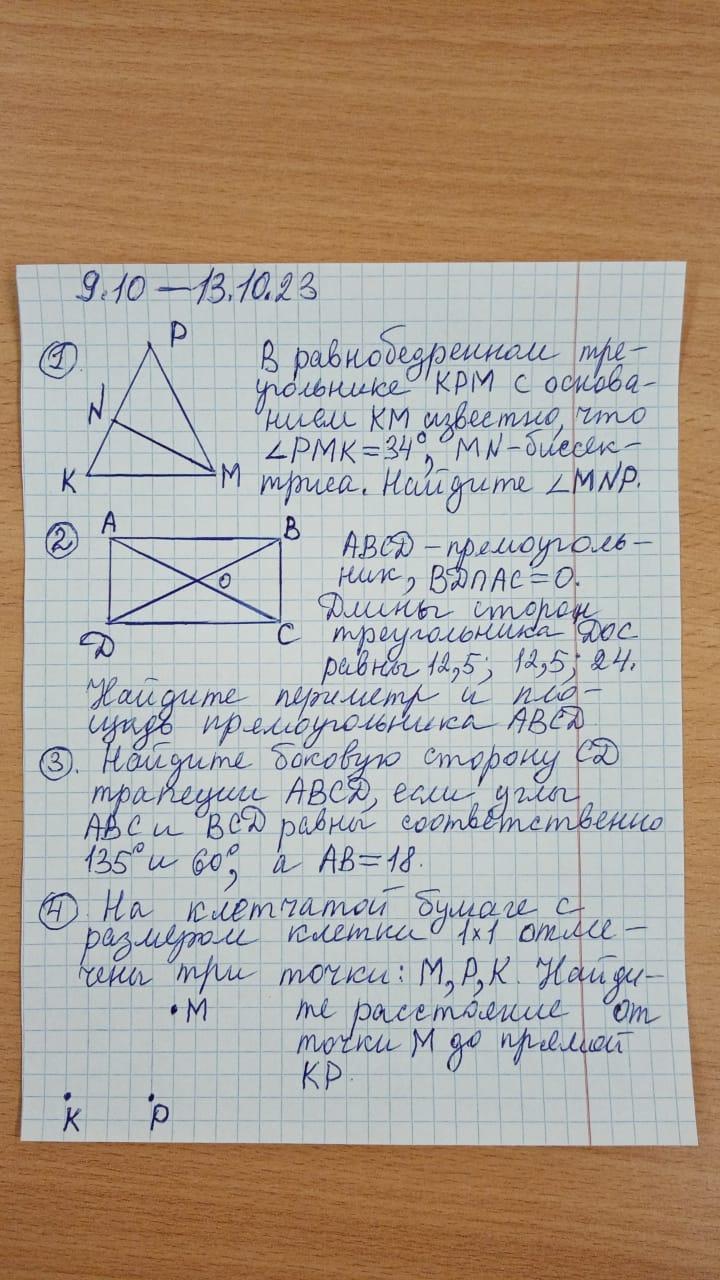 9.10 — 13.10.23
① P N K M
В равнобедренном тре-
угольнике КРМ с основа-
нием КМ известно, что
∠PMK=34°, MN-биссек-
триса. Найдите ∠MNP.
② A B O D C
ABCD - прямоуголь-
ник, BD∩AC=O.
Длины сторон
треугольника DOC
равны 12,5; 12,5; 24.
Найдите периметр и пло-
щадь прямоугольника ABCD
③. Найдите боковую сторону CD
трапеции ABCD, если углы
ABC и BCD равны соответственно
135° и 60°, а AB=18.
④. На клетчатой бумаге с
размером клетки 1x1 отме-
чены три точки: M, P, K. Найди-
те расстояние от
точки M до прямой
KP.
M
K P